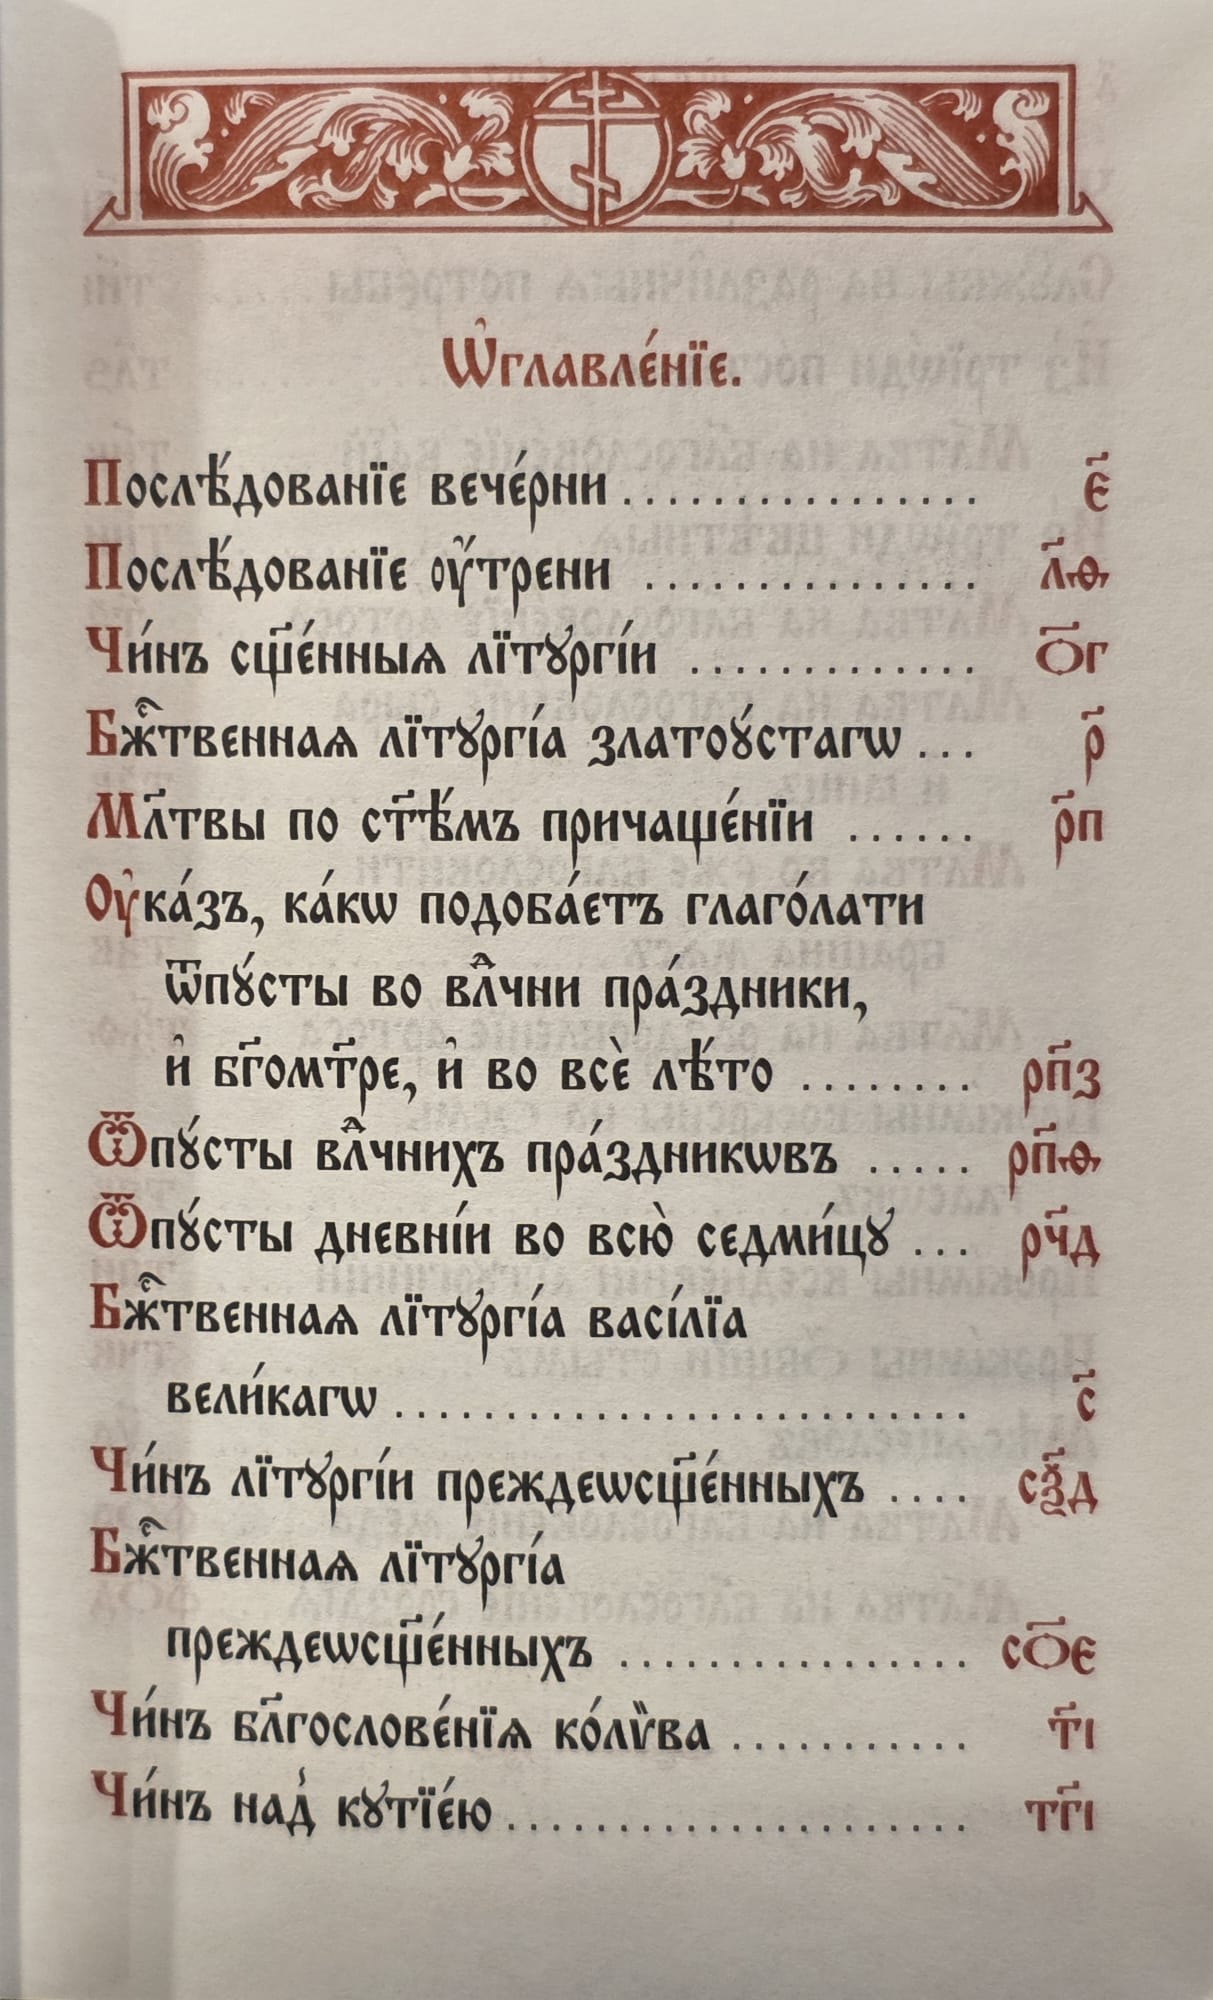 Ѡ҆главле́нїе.
Послѣ́дованїе вече́рни ................ є҃
Послѣ́дованїе ᲂу҆́трени ............... л҃ѳ
Чи́нъ сщ҃е́нныѧ лїтꙋргі́и ............. о҃г
Бж҃ⷭ҇твеннаѧ лїтꙋргі́а златоꙋ́стагѡ ... р҃
Мл҃твы по ст҃ѣ́мъ причаще́нїи ...... р҃п
Оу҆ка́зъ, ка́кѡ подоба́етъ глаго́лати
ѿпꙋ́сты во влⷣчни пра́здники,
и҆ бг҃омт҃ре, и҆ во всѐ лѣ́то ........ рп҃з
Ѿпꙋ́сты влⷣчнихъ пра́здникѡвъ ..... рп҃ѳ
Ѿпꙋ́сты дневні́и во всю̀ седми́цꙋ ... рч҃д
Бжⷭ҇твеннаѧ лїтꙋргі́а васі́лїа
вели́кагѡ .......................... с҃
Чи́нъ лїтꙋргі́и преждеѡсщ҃е́нныхъ .... сѯ҃д
Бжⷭ҇твеннаѧ лїтꙋргі́а
преждеѡсщ҃е́нныхъ ................ со҃є
Чи́нъ бл҃гослове́нїѧ ко́лѷва ........... т҃і
Чи́нъ над̾ кꙋтїе́ю ..................... тг҃і